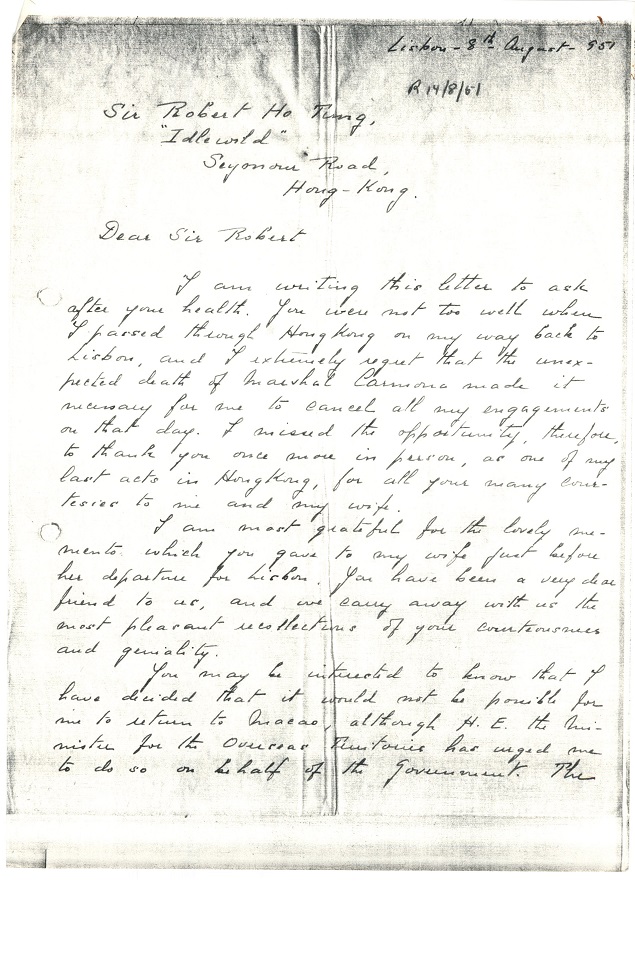 Lisbon - 8th August - 951
R 14/8/51
Sir Robert Ho Tung,
"Idlewild"
Seymour Road,
Hong-Kong.
Dear Sir Robert
I am writing this letter to ask
after your health. You were not too well when
I passed through Hongkong on my way back to
Lisbon, and I extremely regret that the unex-
pected death of Marshal Carmona made it
necessary for me to cancel all my engagements
on that day. I missed the opportunity, therefore,
to thank you once more in person, as one of my
last acts in Hongkong, for all your many cour-
tesies to me and my wife.
I am most grateful for the lovely me-
mento which you gave to my wife just before
her departure for Lisbon. You have been a very dear
friend to us, and we carry away with us the
most pleasant recollections of your courteousness
and geniality.
You may be interested to know that I
have decided that it would not be possible for
me to return to Macao, although H. E. the Mi-
nister for the Overseas Territories has urged me
to do so on behalf of the Government. The